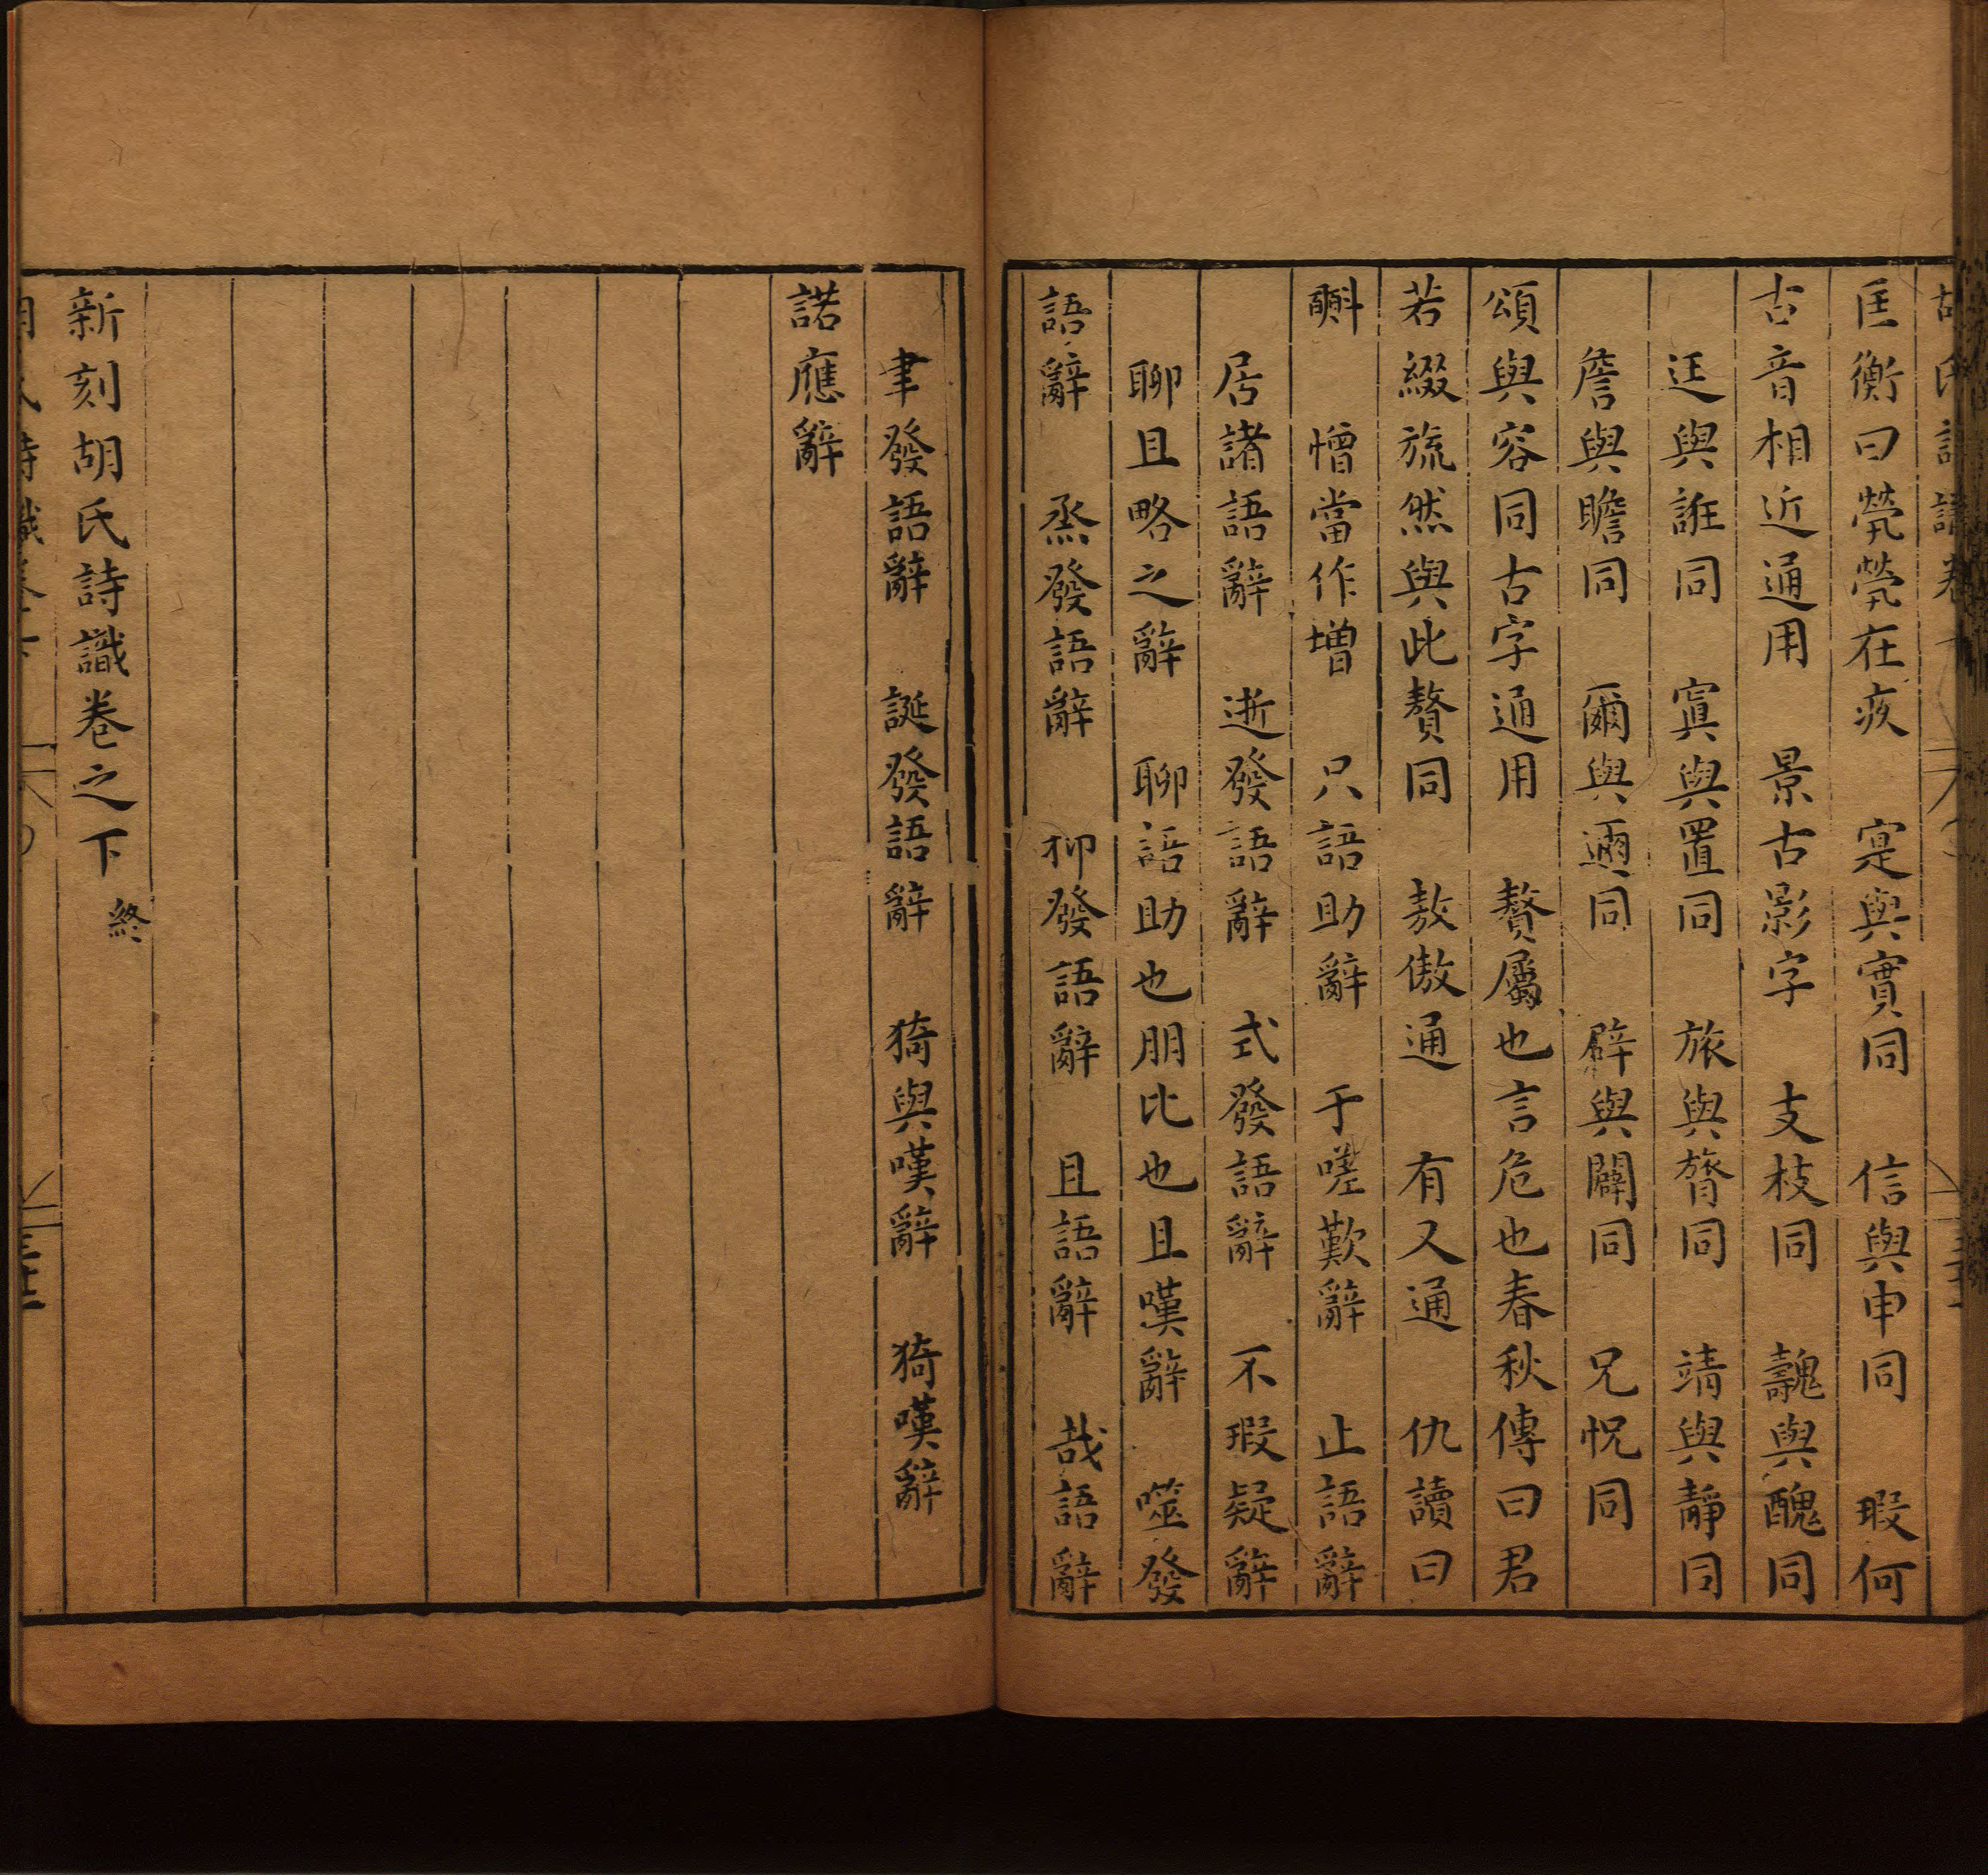 匡衡曰煢煢在疚　寔與實同　信與申同　瑕何
古音相近通用　景古影字　支枝同　魗與醜同
迋與誑同　寘與置同　旅與膂同　靖與靜同
詹與瞻同　爾與邇同　辟與闢同　兄怳同
頌與容同古字通用　贅屬也言危也春秋傳曰君
若綴旒然與此贅同　敖傲通　有又通　仇讀曰
㪺　憎當作增　只語助辭　于嗟歎辭　止語辭
居諸語辭　逝發語辭　式發語辭　不瑕疑辭
聊且略之辭　聊語助也朋比也且嘆辭　噬發
語辭　烝發語辭　抑發語辭　且語辭　哉語辭
聿發語辭　誕發語辭　猗與嘆辭　猗嘆辭
諾應辭
新刻胡氏詩識卷之下終